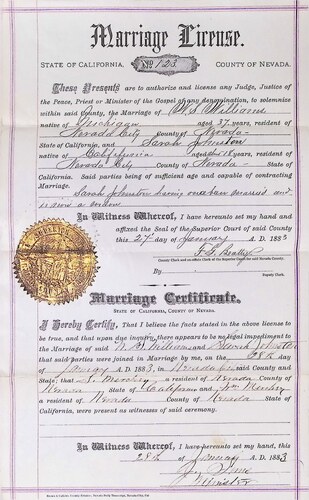 Marriage License.
STATE OF CALIFORNIA, No 123 COUNTY OF NEVADA.
These Presents are to authorize and license any Judge, Justice of
the Peace, Priest or Minister of the Gospel of any denomination, to solemnize
within said County, the Marriage of W. S. Williams
native of Michigan aged 37 years, resident of
Nevada City County of Nevada
State of California, and Sarah Johnston
native of California aged 18 years, resident of
Nevada City County of Nevada
State of California. Said parties being of sufficient age and capable of contracting
Marriage.
Sarah Johnston having once been married and
is now a widow
In Witness Whereof, I have hereunto set my hand and
affixed the Seal of the Superior Court of said County
this 27 day of January A. D. 1883
County Clerk and ex officio Clerk of the Superior Court for said Nevada County.
By
Deputy Clerk.
Marriage Certificate.
STATE OF CALIFORNIA, COUNTY OF NEVADA.
I Hereby Certify, That I believe the facts stated in the above license
to be true, and that upon due inquiry, there appears to be no legal impediment to
the Marriage of said Williams and Johnston
that said parties were joined in Marriage by me, on the 28th day
of January A. D. 1883, in Nevada County and
State; that a resident of Nevada County of
Nevada State of California and
a resident of Nevada County of Nevada State of
California, were present as witnesses of said ceremony.
In Witness Whereof, I have hereunto set my hand, this
28th day of January A. D. 1883
Minister